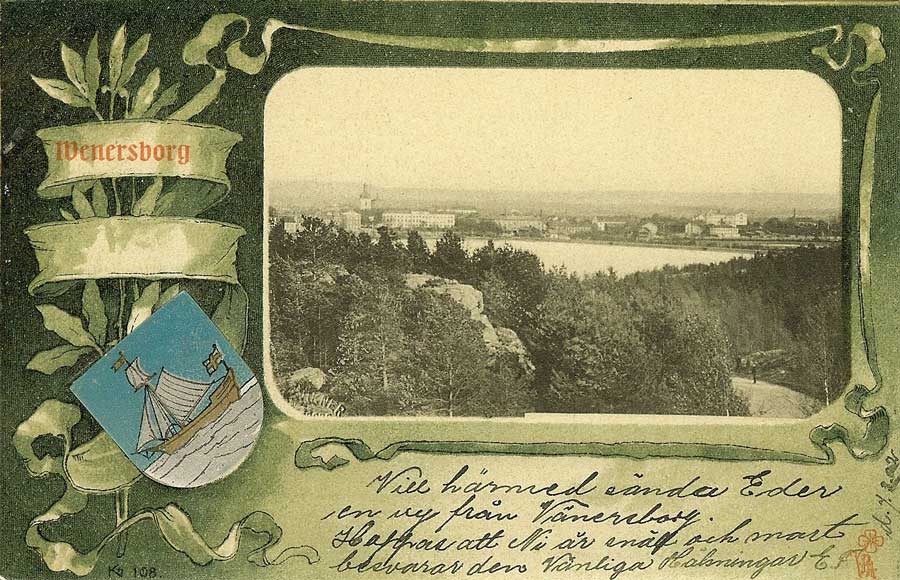 Wenersborg
Vill härmed sända Eder
en vy från Vänersborg.
Hoppas att Ni är snäll och snart
besvarar den Vänliga Hälsningar E.P
Kv 108.